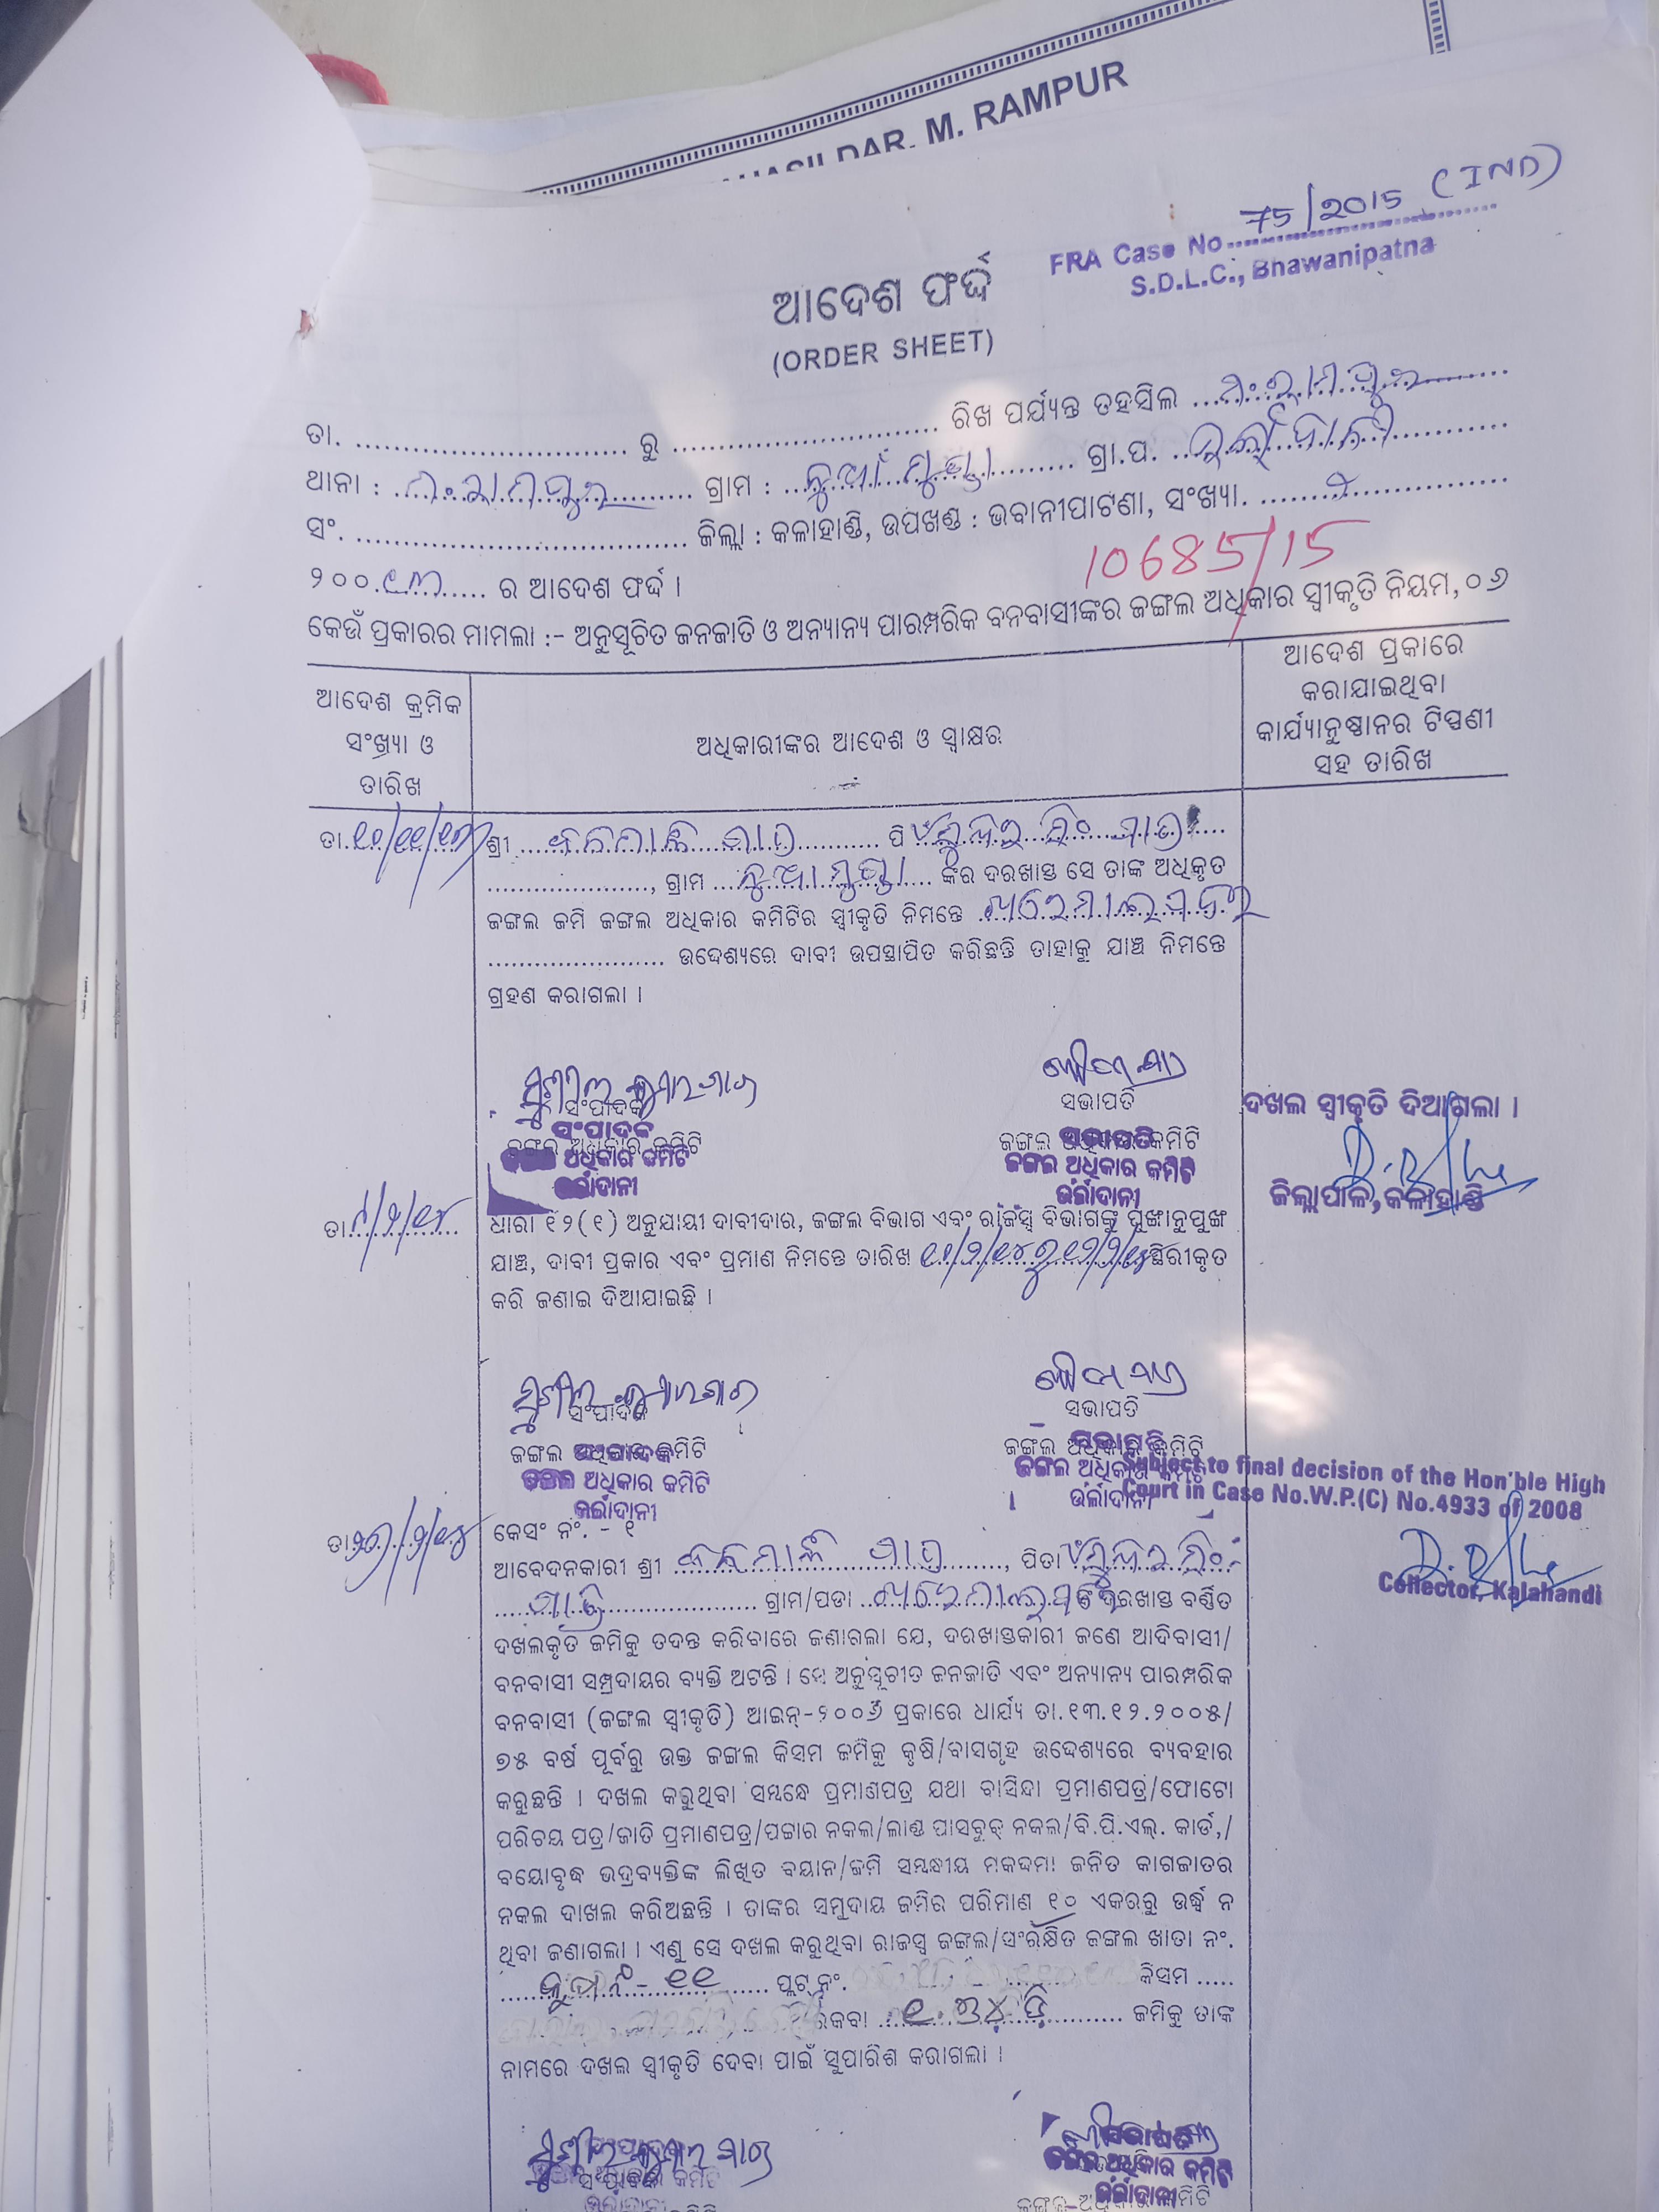 TAHASILDAR, M. RAMPUR
FRA Case No 75/2015 (IND)
S.D.L.C., Bhawanipatna
ଆଦେଶ ଫର୍ଦ୍ଦ
(ORDER SHEET)
ତା. ........ ରୁ ........ ରିଖ ପର୍ଯ୍ୟନ୍ତ ତହସିଲ ମ.ରାମପୁର
ଥାନା : ମ.ରାମପୁର ଗ୍ରାମ : ନୁଆଁମୁଣ୍ଡା ଗ୍ରା.ପ. ଉର୍ଲାଦାନୀ
ସଂ. ........ ଜିଲ୍ଲା : କଳାହାଣ୍ଡି, ଉପଖଣ୍ଡ : ଭବାନୀପାଟଣା, ସଂଖ୍ୟା. ........
10685/15
୨୦୦.୧୩ ର ଆଦେଶ ଫର୍ଦ୍ଦ ।
କେଉଁ ପ୍ରକାରର ମାମଲା :- ଅନୁସୂଚିତ ଜନଜାତି ଓ ଅନ୍ୟାନ୍ୟ ପାରମ୍ପରିକ ବନବାସୀଙ୍କର ଜଙ୍ଗଲ ଅଧିକାର ସ୍ୱୀକୃତି ନିୟମ,୦୬
ଆଦେଶ କ୍ରମିକ
ସଂଖ୍ୟା ଓ
ତାରିଖ
ଅଧିକାରୀଙ୍କର ଆଦେଶ ଓ ସ୍ୱାକ୍ଷର
ଆଦେଶ ପ୍ରକାରେ
କରାଯାଇଥିବା
କାର୍ଯ୍ୟାନୁଷ୍ଠାନର ଟିପ୍ପଣୀ
ସହ ତାରିଖ
ତା.୧୦/୧୧/୧୩ ଶ୍ରୀ ........ ମାଝୀ ପି ........ ମାଝୀ
........, ଗ୍ରାମ ନୁଆମୁଣ୍ଡା ଙ୍କର ଦରଖାସ୍ତ ସେ ତାଙ୍କ ଅଧିକୃତ
ଜଙ୍ଗଲ ଜମି ଜଙ୍ଗଲ ଅଧିକାର କମିଟିର ସ୍ୱୀକୃତି ନିମନ୍ତେ ........
........ ଉଦ୍ଦେଶ୍ୟରେ ଦାବୀ ଉପସ୍ଥାପିତ କରିଛନ୍ତି ତାହାକୁ ଯାଞ୍ଚ ନିମନ୍ତେ
ଗ୍ରହଣ କରାଗଲା ।
ସୁଶୀଲ କୁମାର ମାଝୀ
ସଂପାଦକ
ସଂପାଦକ
ଜଙ୍ଗଲ ଅଧିକାର କମିଟି
ଅଧିକାର କମିଟି
ଉର୍ଲାଦାନୀ
ସଭାପତି
ସଭାପତି
ଜଙ୍ଗଲ ଅଧିକାର କମିଟି
ଜଙ୍ଗଲ ଅଧିକାର କମିଟି
ଉର୍ଲାଦାନୀ
ଦଖଲ ସ୍ୱୀକୃତି ଦିଆଗଲା ।
ଜିଲ୍ଲାପାଳ, କଳାହାଣ୍ଡି
ତା. ........ ଧାରା ୧୨(୧) ଅନୁଯାୟୀ ଦାବୀଦାର, ଜଙ୍ଗଲ ବିଭାଗ ଏବଂ ରାଜସ୍ୱ ବିଭାଗଙ୍କୁ ପୁଙ୍ଖାନୁପୁଙ୍ଖ
ଯାଞ୍ଚ, ଦାବୀ ପ୍ରକାର ଏବଂ ପ୍ରମାଣ ନିମନ୍ତେ ତାରିଖ ୧୧/୨/୧୪ ରୁ ୧୨/୨/୧୪ ସ୍ଥିରୀକୃତ
କରି ଜଣାଇ ଦିଆଯାଇଛି ।
ସୁଶୀଲ କୁମାର ମାଝୀ
ସଂପାଦକ
ଜଙ୍ଗଲ ଅଧିକାର କମିଟି
ଜଙ୍ଗଲ ଅଧିକାର କମିଟି
ଉର୍ଲାଦାନୀ
ସଭାପତି
ସଭାପତି
ଜଙ୍ଗଲ ଅଧିକାର କମିଟି
ଜଙ୍ଗଲ ଅଧିକାର କମିଟି
ଉର୍ଲାଦାନୀ
Subject to final decision of the Hon'ble High
Court in Case No.W.P.(C) No.4933 of 2008
Collector, Kalahandi
କେସଂ ନଂ. - ୧
ଆବେଦନକାରୀ ଶ୍ରୀ ........ ମାଝୀ, ପିତା ........
ମାଝୀ ଗ୍ରାମ/ପଡା ........ ଙ୍କ ଦରଖାସ୍ତ ବର୍ଣ୍ଣିତ
ଦଖଲକୃତ ଜମିକୁ ତଦନ୍ତ କରିବାରେ ଜଣାଗଲା ଯେ, ଦରଖାସ୍ତକାରୀ ଜଣେ ଆଦିବାସୀ/
ବନବାସୀ ସମ୍ପ୍ରଦାୟର ବ୍ୟକ୍ତି ଅଟନ୍ତି । ସେ ଅନୁସୂଚୀତ ଜନଜାତି ଏବଂ ଅନ୍ୟାନ୍ୟ ପାରମ୍ପରିକ
ବନବାସୀ (ଜଙ୍ଗଲ ସ୍ୱୀକୃତି) ଆଇନ୍-୨୦୦୬ ପ୍ରକାରେ ଧାର୍ଯ୍ୟ ତା.୧୩.୧୨.୨୦୦୫/
୭୫ ବର୍ଷ ପୂର୍ବରୁ ଉକ୍ତ ଜଙ୍ଗଲ କିସମ ଜମିକୁ କୃଷି/ବାସଗୃହ ଉଦ୍ଦେଶ୍ୟରେ ବ୍ୟବହାର
କରୁଛନ୍ତି । ଦଖଲ କରୁଥିବା ସମ୍ବନ୍ଧେ ପ୍ରମାଣପତ୍ର ଯଥା ବାସିନ୍ଦା ପ୍ରମାଣପତ୍ର/ଫୋଟୋ
ପରିଚୟ ପତ୍ର/ଜାତି ପ୍ରମାଣପତ୍ର/ପଟ୍ଟାର ନକଲ/ଲାଣ୍ଡ ପାସବୁକ୍ ନକଲ/ବି.ପି.ଏଲ୍. କାର୍ଡ,/
ବୟୋବୃଦ୍ଧ ଭଦ୍ରବ୍ୟକ୍ତିଙ୍କ ଲିଖିତ ବୟାନ/ଜମି ସମ୍ବନ୍ଧୀୟ ମକଦ୍ଦମା ଜନିତ କାଗଜାତର
ନକଲ ଦାଖଲ କରିଅଛନ୍ତି । ତାଙ୍କର ସମୁଦାୟ ଜମିର ପରିମାଣ ୧୦ ଏକରରୁ ଉର୍ଦ୍ଧ୍ୱ ନ
ଥିବା ଜଣାଗଲା । ଏଣୁ ସେ ଦଖଲ କରୁଥିବା ରାଜସ୍ୱ ଜଙ୍ଗଲ/ସଂରକ୍ଷିତ ଜଙ୍ଗଲ ଖାତା ନଂ.
........ - ୧୧ ପ୍ଲଟ୍ ନଂ. ........ କିସମ .....
........ ରକବା ........ ଜମିକୁ ତାଙ୍କ
ନାମରେ ଦଖଲ ସ୍ୱୀକୃତି ଦେବା ପାଇଁ ସୁପାରିଶ କରାଗଲା ।
ସୁଶୀଲ କୁମାର ମାଝୀ
ସଂପାଦକ
ସଭାପତି
ଜଙ୍ଗଲ ଅଧିକାର କମିଟି
ଉର୍ଲାଦାନୀ